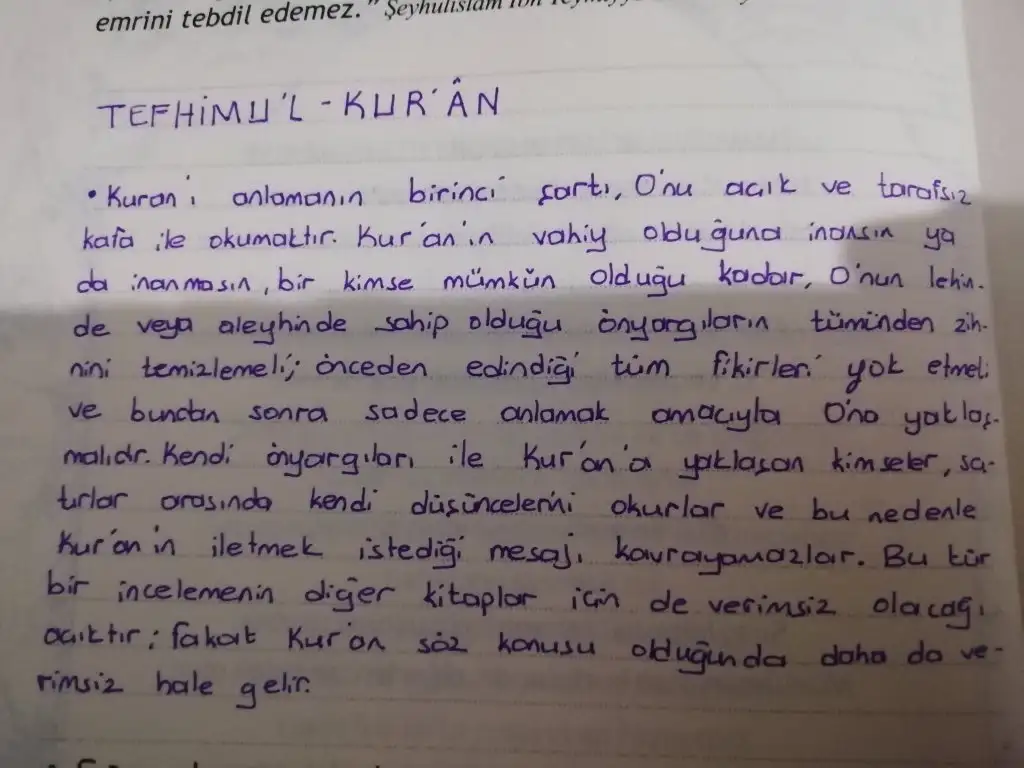 emrini tebdil edemez." Şeyhulislam İbn
TEFHİMU'L - KUR'ÂN
• Kuran'ı anlamanın birinci şartı, O'nu açık ve tarafsız
kafa ile okumaktır. Kur'an'ın vahiy olduğuna inansın ya
da inanmasın, bir kimse mümkün olduğu kadar, O'nun lehin-
de veya aleyhinde sahip olduğu önyargıların tümünden zih-
nini temizlemeli; önceden edindiği tüm fikirleri yok etmeli
ve bundan sonra sadece anlamak amacıyla O'na yaklaş-
malıdır. Kendi önyargıları ile Kur'an'a yaklaşan kimseler, sa-
tırlar arasında kendi düşüncelerini okurlar ve bu nedenle
Kur'an'ın iletmek istediği mesajı kavrayamazlar. Bu tür
bir incelemenin diğer kitaplar için de verimsiz olacağı
açıktır; fakat Kur'an söz konusu olduğunda daha da ve-
rimsiz hale gelir.